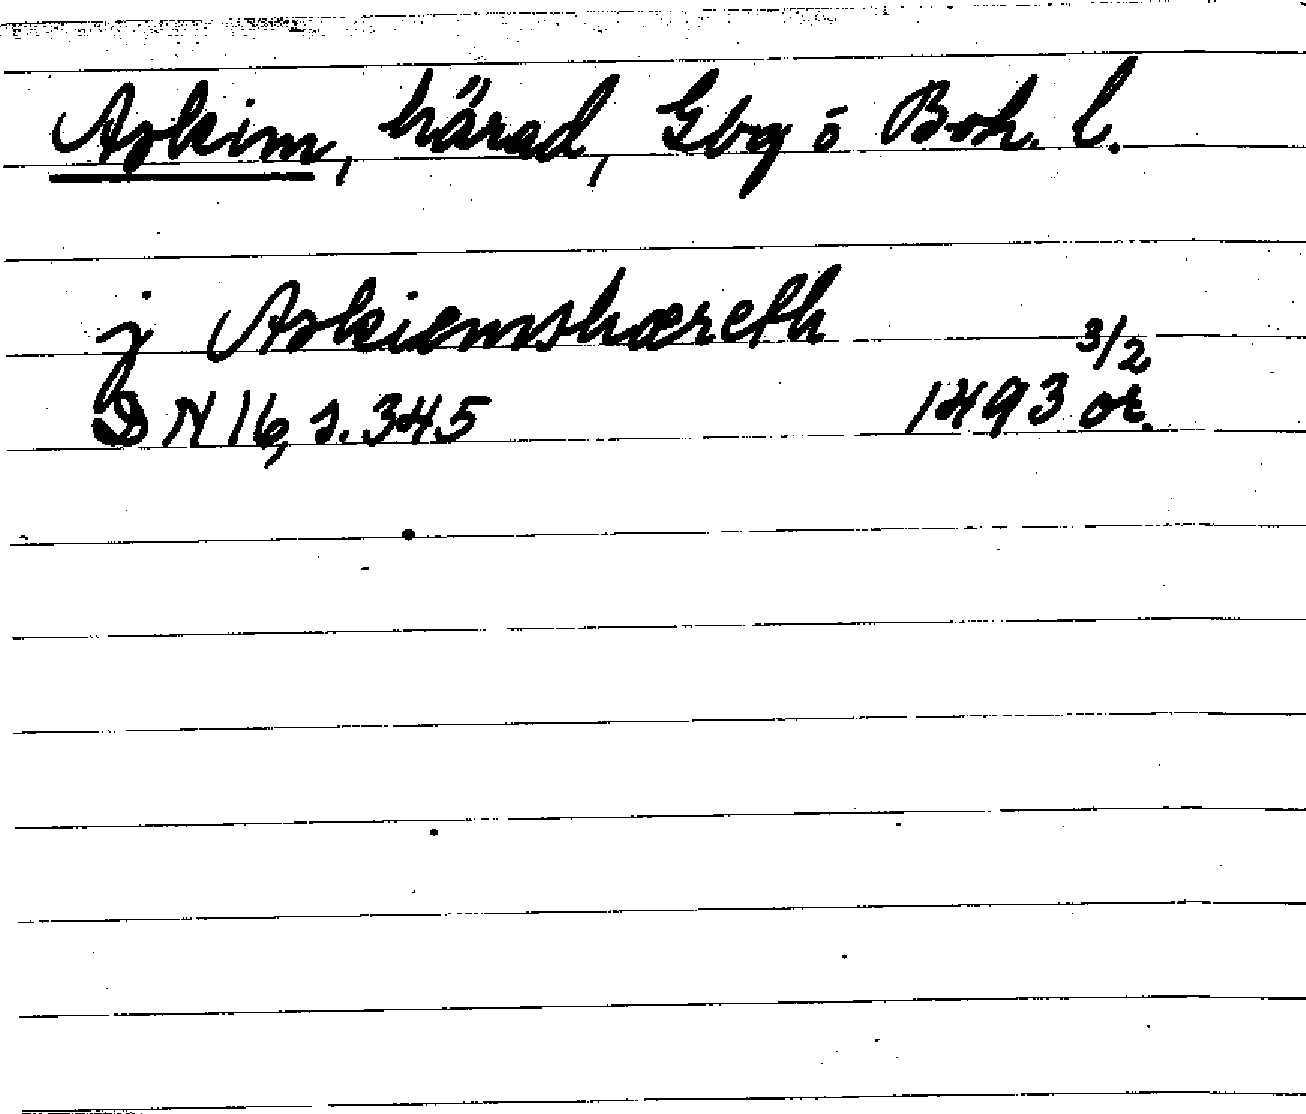 Askim, härad, Gbg ö Boh. l.
j Askiemshæreth 3/2
DN 16, s. 345 1493 or.